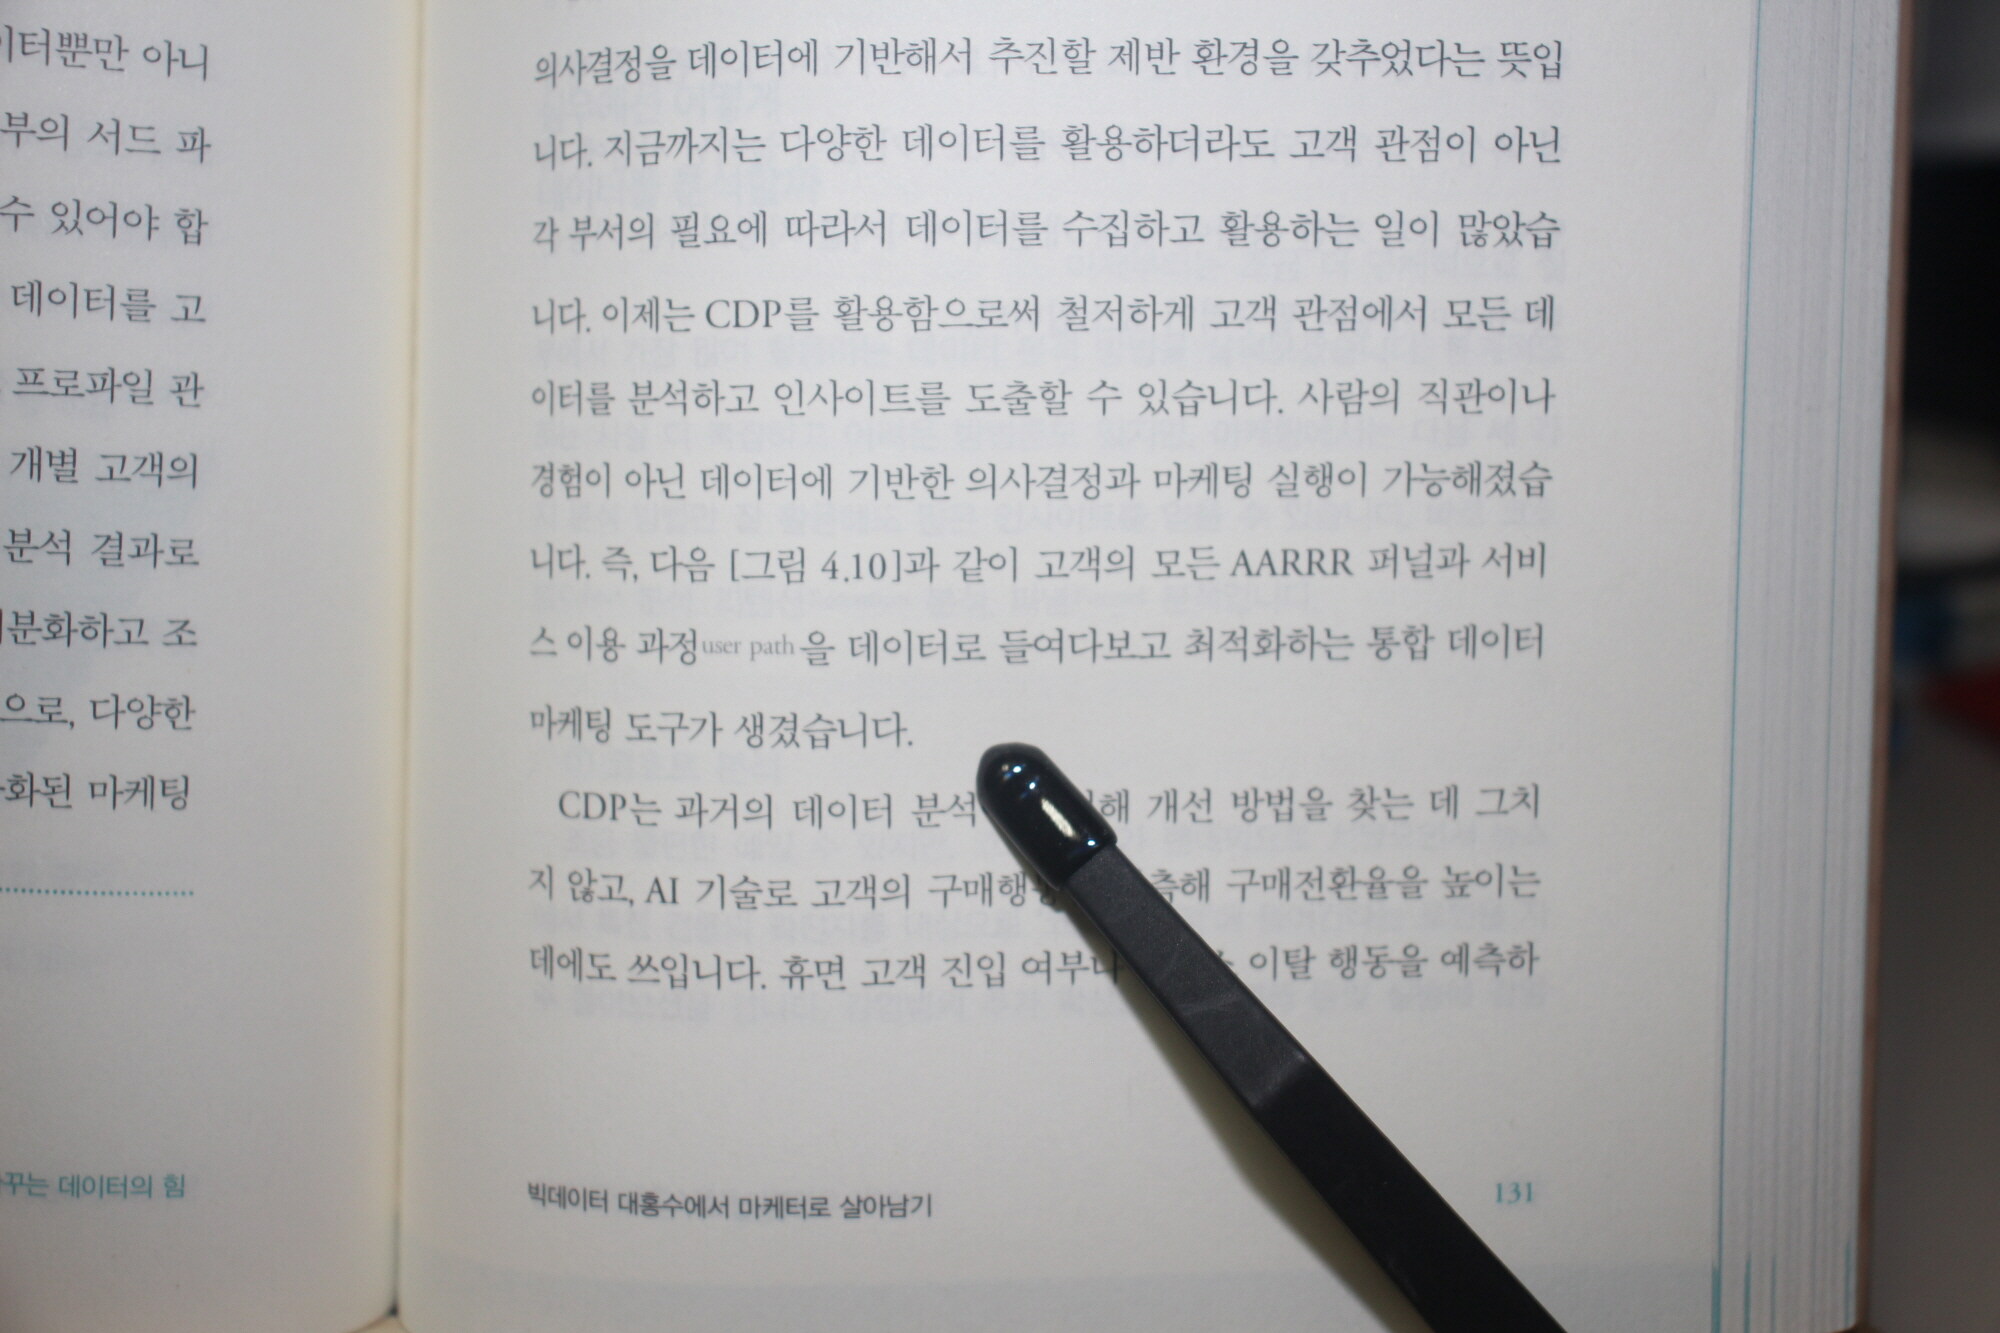 이터뿐만 아니
부의 서드 파
수 있어야 합
데이터를 고
프로파일 관
개별 고객의
분석 결과로
분화하고 조
으로, 다양한
화된 마케팅
꾸는 데이터의 힘
의사결정을 데이터에 기반해서 추진할 제반 환경을 갖추었다는 뜻입
니다. 지금까지는 다양한 데이터를 활용하더라도 고객 관점이 아닌
각 부서의 필요에 따라서 데이터를 수집하고 활용하는 일이 많았습
니다. 이제는 CDP를 활용함으로써 철저하게 고객 관점에서 모든 데
이터를 분석하고 인사이트를 도출할 수 있습니다. 사람의 직관이나
경험이 아닌 데이터에 기반한 의사결정과 마케팅 실행이 가능해졌습
니다. 즉, 다음 [그림 4.10]과 같이 고객의 모든 AARRR 퍼널과 서비
스 이용 과정user path을 데이터로 들여다보고 최적화하는 통합 데이터
마케팅 도구가 생겼습니다.
CDP는 과거의 데이터 분석 해 개선 방법을 찾는 데 그치
지 않고, AI 기술로 고객의 구매행 측해 구매전환율을 높이는
데에도 쓰입니다. 휴면 고객 진입 여부나 이탈 행동을 예측하
빅데이터 대홍수에서 마케터로 살아남기
131